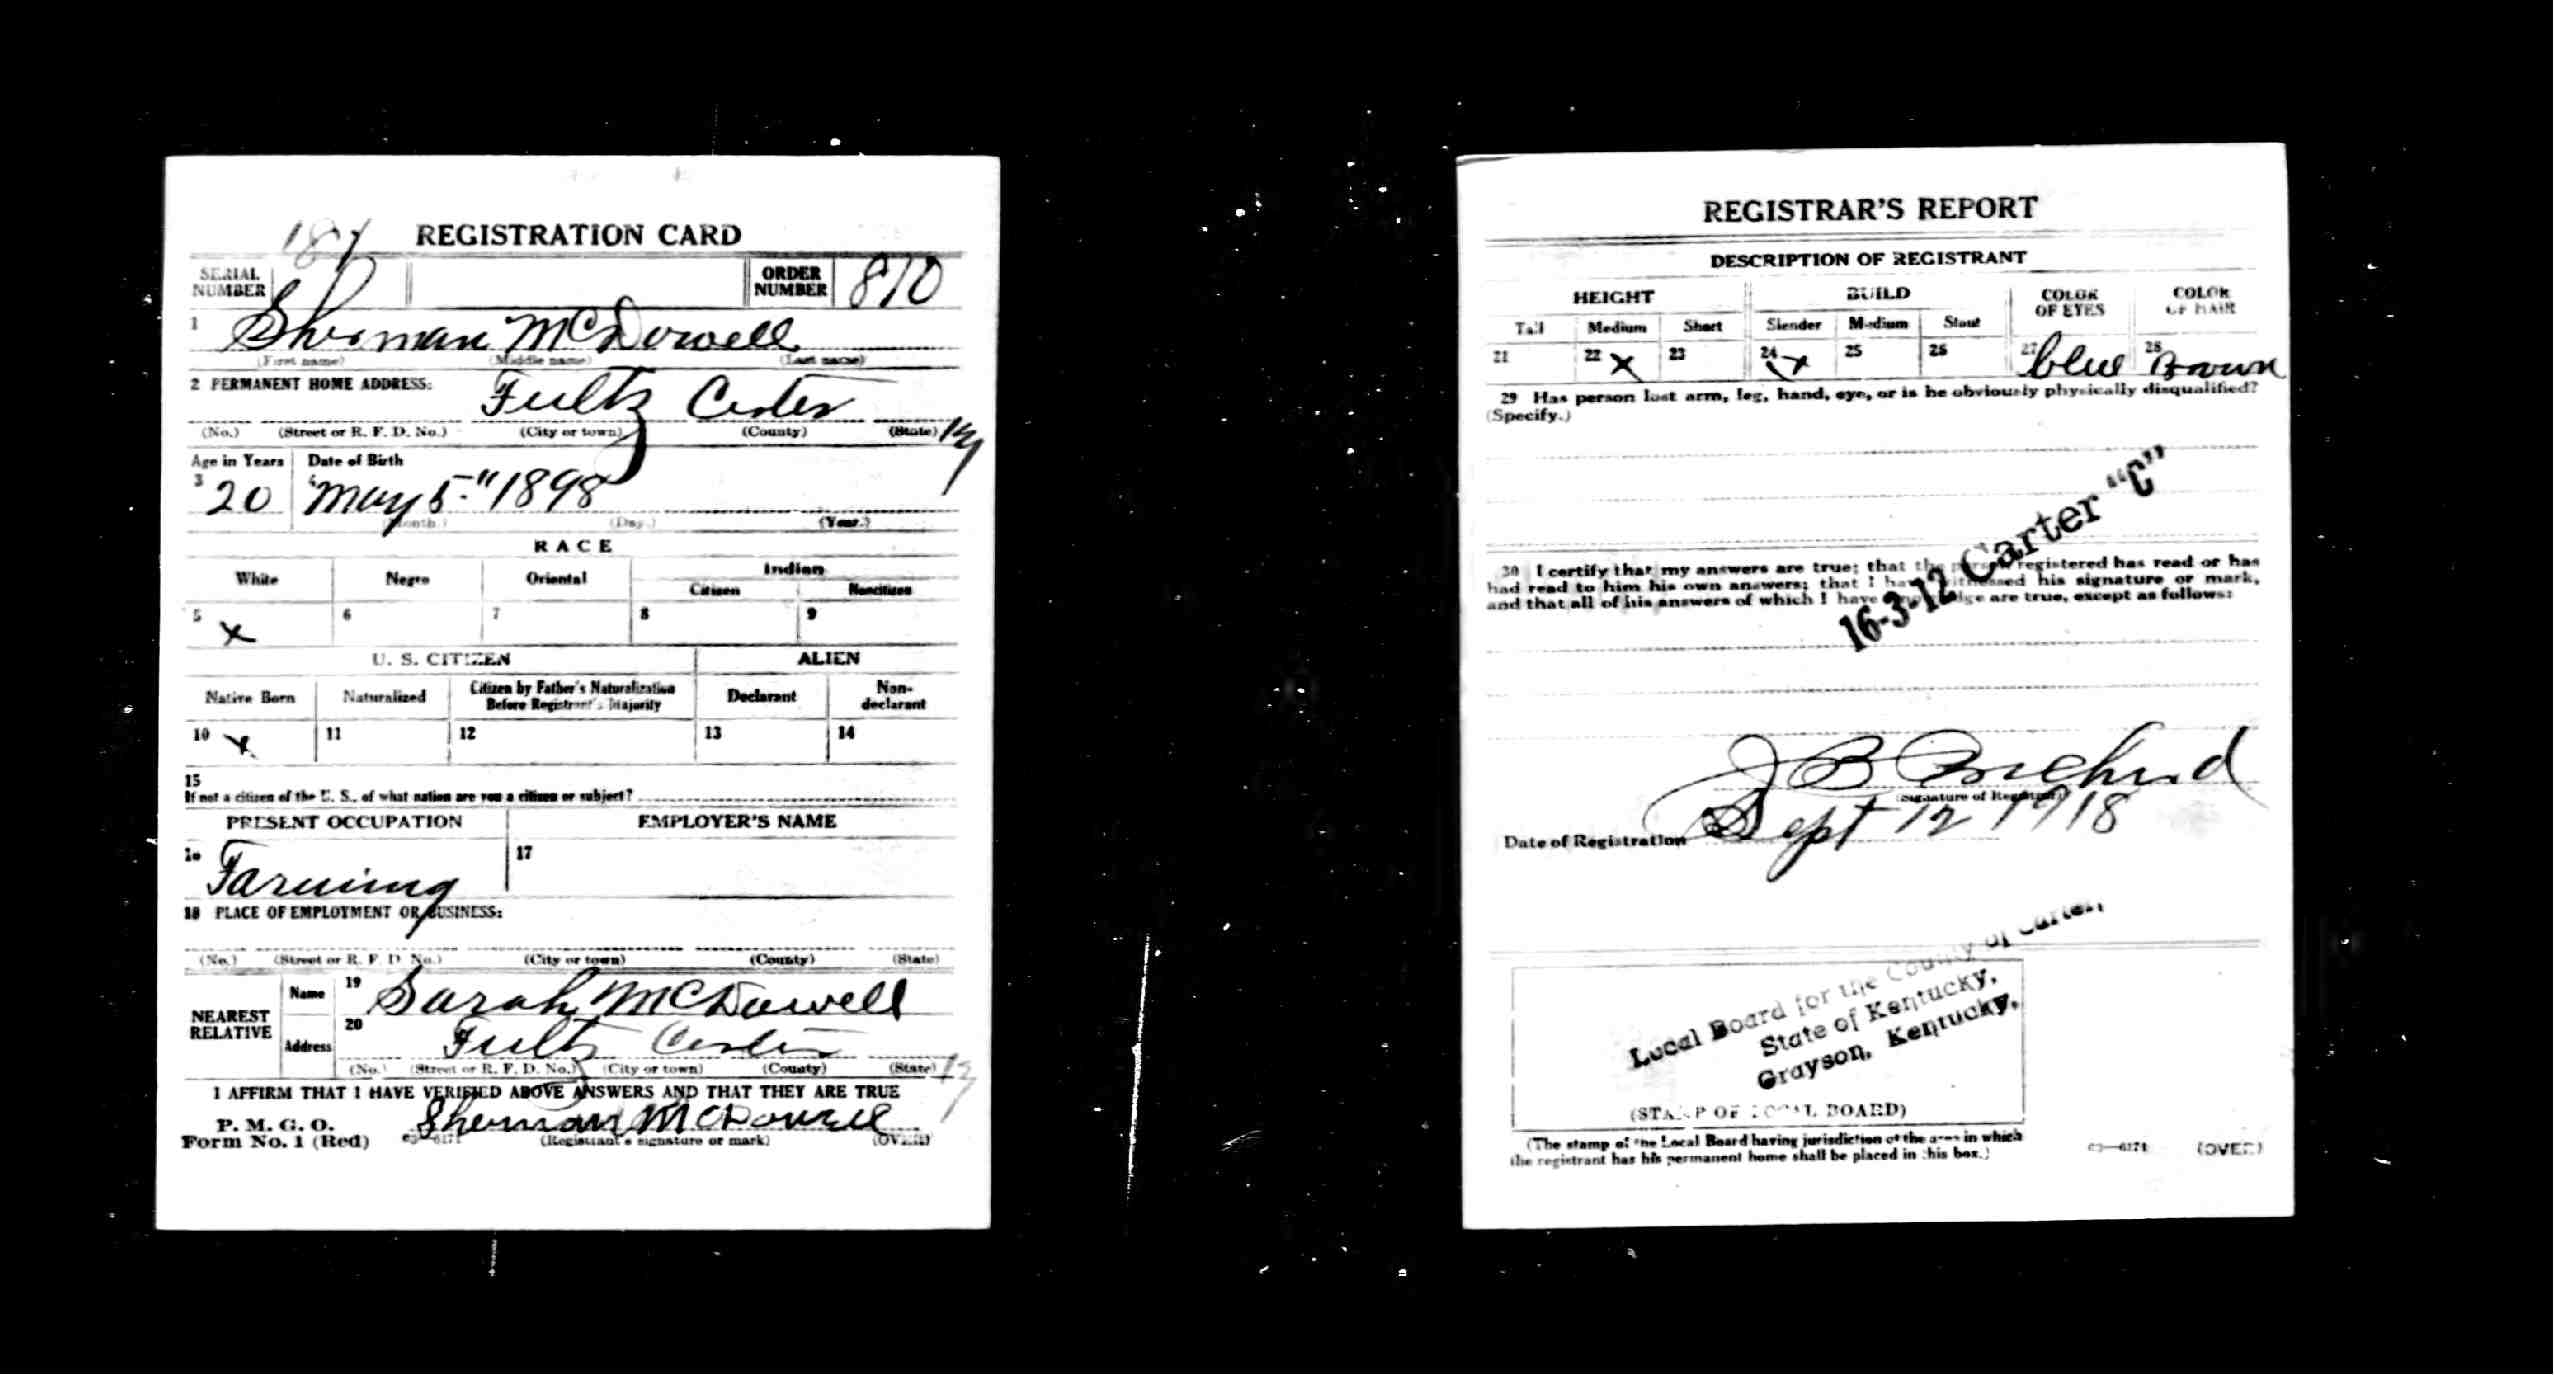 REGISTRATION CARD
187
SERIAL NUMBER
ORDER NUMBER 810
1 Sherman McDowell
(First name) (Middle name) (Last name)
2 PERMANENT HOME ADDRESS:
Fultz Carter Ky
(No.) (Street or R. F. D. No.) (City or town) (County) (State)
Age in Years Date of Birth
3 20 4 May 5" 1898
(Month.) (Day.) (Year.)
RACE
White Negro Oriental Indian
Citizen Noncitizen
5 x 6 7 8 9
U. S. CITIZEN ALIEN
Native Born Naturalized Citizen by Father's Naturalization Before Registrant's Majority Declarant Non-declarant
10 x 11 12 13 14
15
If not a citizen of the U. S., of what nation are you a citizen or subject?
PRESENT OCCUPATION EMPLOYER'S NAME
16 Farming 17
18 PLACE OF EMPLOYMENT OR BUSINESS:
(No.) (Street or R. F. D. No.) (City or town) (County) (State)
NEAREST RELATIVE
Name 19 Sarah McDowell
Address 20 Fultz Carter Ky
(No.) (Street or R. F. D. No.) (City or town) (County) (State)
I AFFIRM THAT I HAVE VERIFIED ABOVE ANSWERS AND THAT THEY ARE TRUE
P. M. G. O.
Form No. 1 (Red) 03—6171 Sherman McDowell
(Registrant's signature or mark) (OVER)
REGISTRAR'S REPORT
DESCRIPTION OF REGISTRANT
HEIGHT BUILD COLOR OF EYES COLOR OF HAIR
Tall Medium Short Slender Medium Stout
21 22 x 23 24 x 25 26 27 blue 28 Brown
29 Has person lost arm, leg, hand, eye, or is he obviously physically disqualified?
(Specify.)
16-3-12 Carter "C"
30 I certify that my answers are true; that the person registered has read or has
had read to him his own answers; that I have witnessed his signature or mark,
and that all of his answers of which I have knowledge are true, except as follows:
J B
(Signature of Registrar)
Date of Registration Sept 12 1918
Local Board for the County of Carter,
State of Kentucky,
Grayson, Kentucky,
(STAMP OF LOCAL BOARD)
(The stamp of the Local Board having jurisdiction of the area in which
the registrant has his permanent home shall be placed in this box.)
03—6171 (OVER)